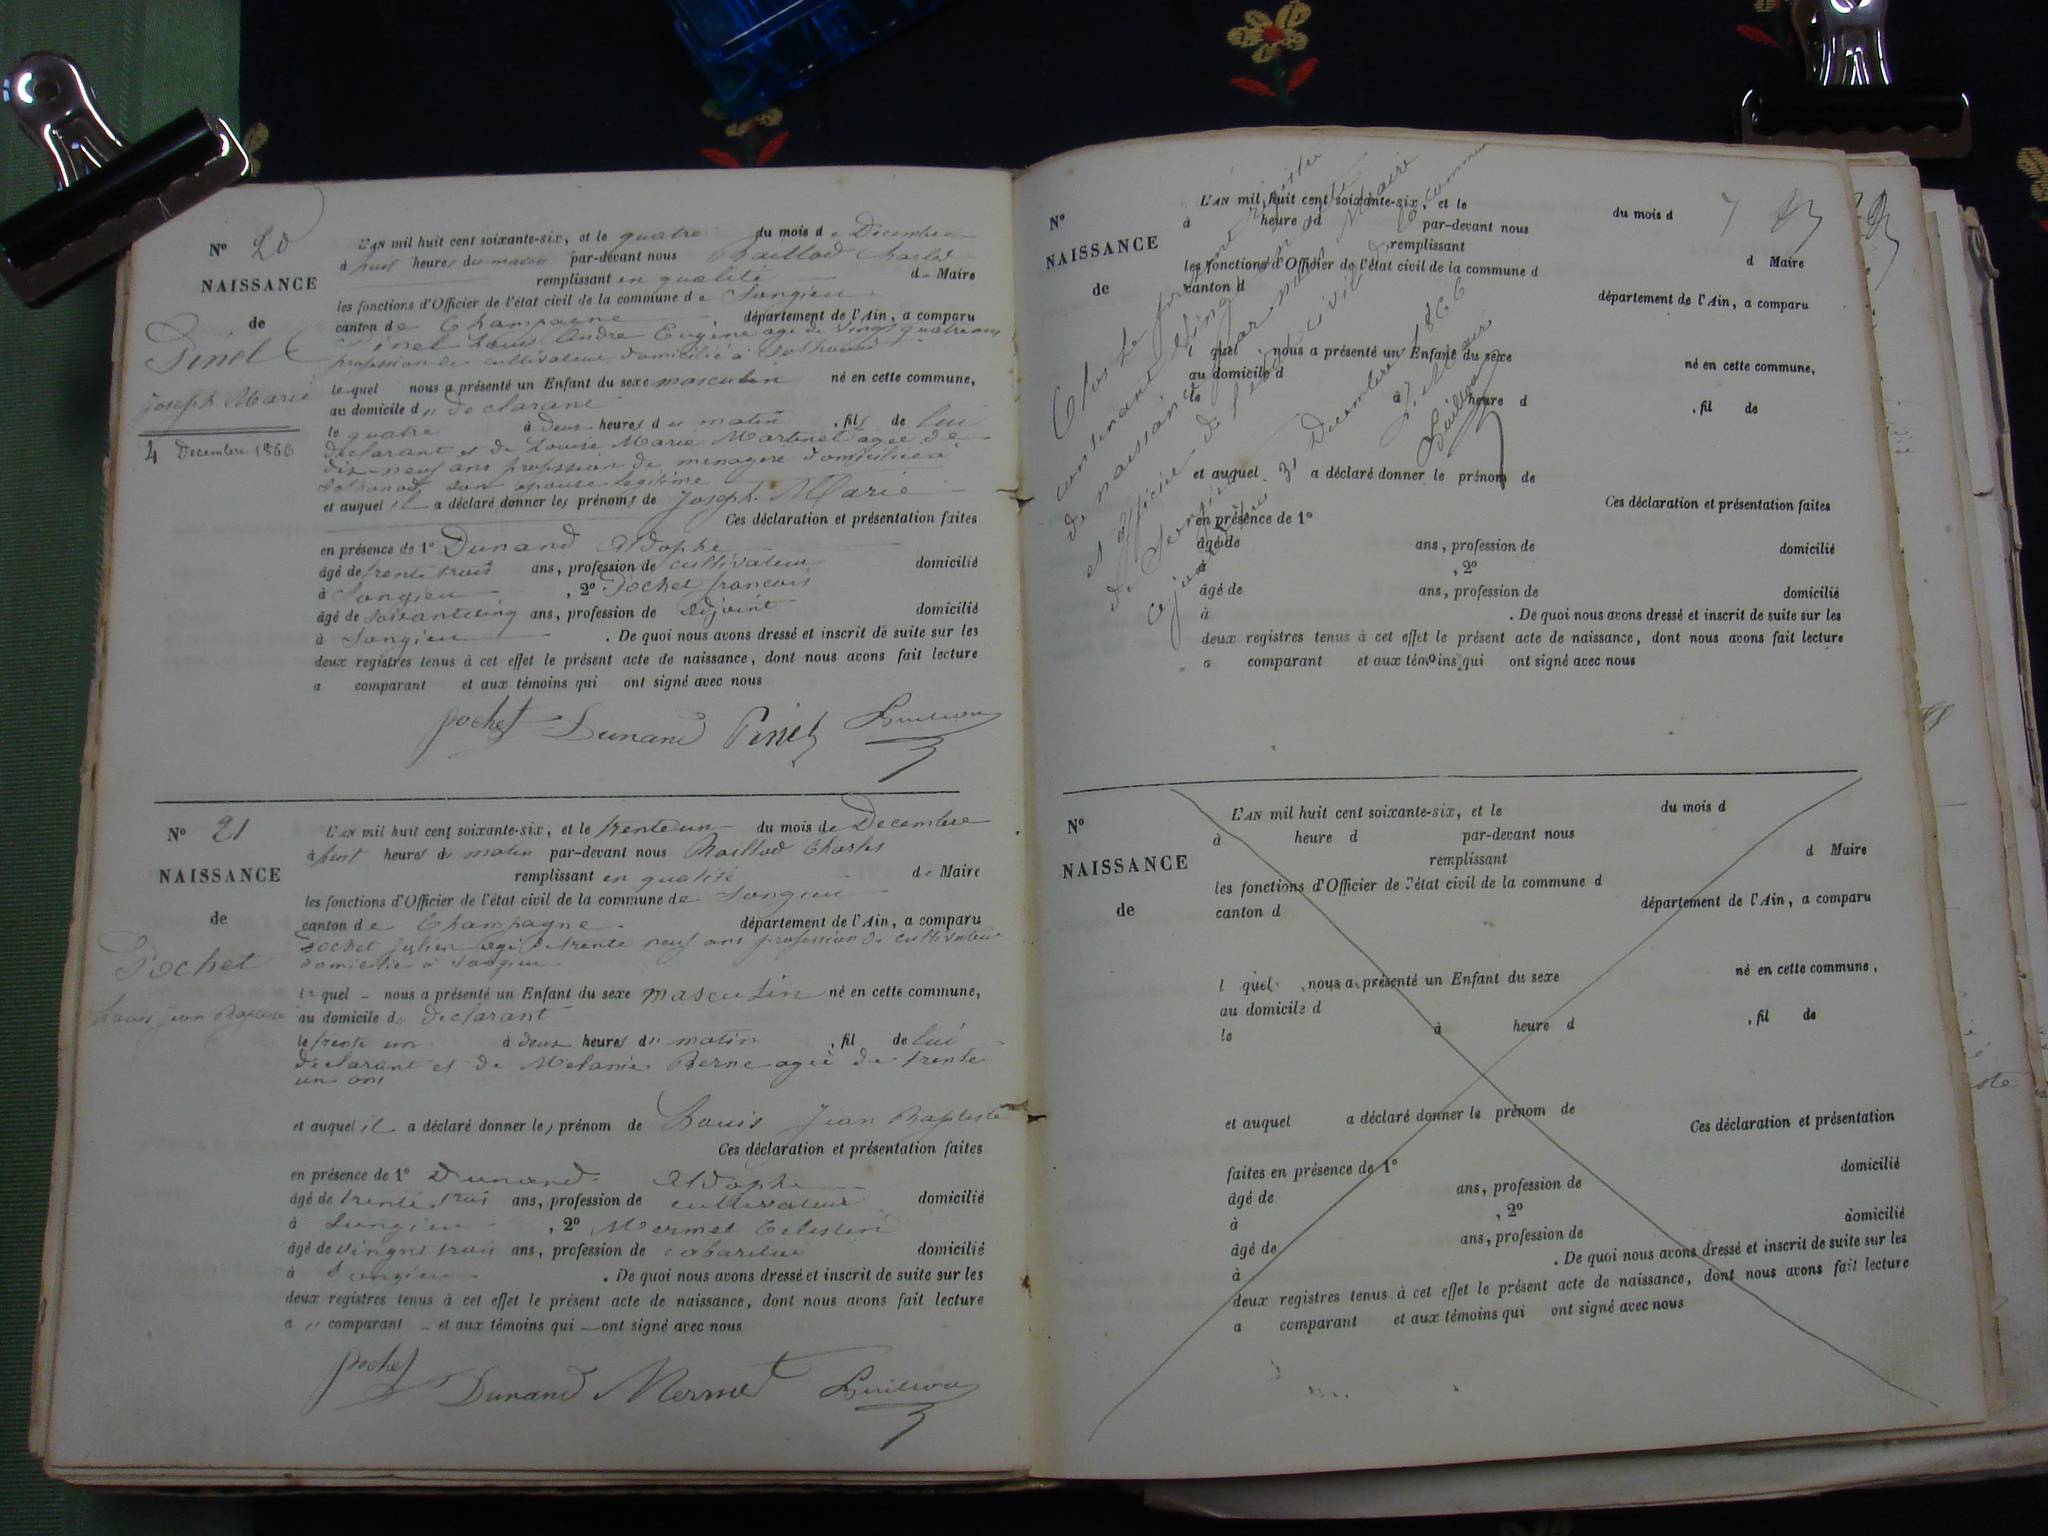 N° 20
NAISSANCE
de
Pinel
Joseph Marie
4 Decembre 1866
L'AN mil huit cent soixante-six, et le quatre du mois de Decembre
à huit heures du matin par-devant nous Charles
remplissant en qualité de Maire
les fonctions d'Officier de l'état civil de la commune de Songieu
canton de Champagne département de l'Ain, a comparu
Pinel Louis Andre Eugène age de vingt quatre ans
profession de cultivateur domicilié à Sothonod
lequel nous a présenté un Enfant du sexe masculin né en cette commune,
au domicile du declarant
le quatre à deux heures du matin, fils de lui
declarant et de Louise Marie Martinel agée de
dix-neuf ans profession de menagere domiciliée à
Sothonod son epouse legitime
et auquel il a déclaré donner les prénoms de Joseph Marie
Ces déclaration et présentation faites
en présence de 1° Dunand Aldophe
âgé de trente trois ans, profession de cultivateur domicilié
à Songieu, 2° Pochet francois
âgé de soixante cinq ans, profession de adjoint domicilié
à Songieu. De quoi nous avons dressé et inscrit de suite sur les
deux registres tenus à cet effet le présent acte de naissance, dont nous avons fait lecture
a comparant et aux témoins qui ont signé avec nous
pochet Dunand Pinel
N° 21
NAISSANCE
de
Pochet
Louis Jean Baptiste
L'AN mil huit cent soixante-six, et le trente un du mois de Decembre
à huit heures du matin par-devant nous Charles
remplissant en qualité de Maire
les fonctions d'Officier de l'état civil de la commune de Songieu
canton de Champagne département de l'Ain, a comparu
Pochet Julien agé de trente neuf ans profession de cultivateur
domicilié à Songieu
lequel nous a présenté un Enfant du sexe masculin né en cette commune,
au domicile du declarant
le trente un à deux heures du matin, fil de lui
declarant et de Melanie Berne agée de trente
un ans
et auquel il a déclaré donner le, prénom de Louis Jean Baptiste
Ces déclaration et présentation faites
en présence de 1° Dunand Aldophe
âgé de trente trois ans, profession de cultivateur domicilié
à Songieu, 2° Mermet Celestin
âgé de vingt trois ans, profession de domicilié
à Songieu. De quoi nous avons dressé et inscrit de suite sur les
deux registres tenus à cet effet le présent acte de naissance, dont nous avons fait lecture
a u comparant et aux témoins qui ont signé avec nous
pochet Dunand Mermet
N°
NAISSANCE
de
L'AN mil huit cent soixante-six, et le du mois d
à heure d par-devant nous
remplissant
d Maire
les fonctions d'Officier de l'état civil de la commune d
canton d département de l'Ain, a comparu
l quel nous a présenté un Enfant du sexe né en cette commune,
au domicile d
le à heure d, fil de
et auquel a déclaré donner le prénom de
Ces déclaration et présentation faites
en présence de 1°
âgé de ans, profession de domicilié
à, 2°
âgé de ans, profession de domicilié
à. De quoi nous avons dressé et inscrit de suite sur les
deux registres tenus à cet effet le présent acte de naissance, dont nous avons fait lecture
a comparant et aux témoins qui ont signé avec nous
Clos le present registre
contenant vingt un
de naissance par nous Maire
et officier de l'etat civil de la commune
de Songieu 31 Decembre 1866
Le Maire
N°
NAISSANCE
de
L'AN mil huit cent soixante-six, et le du mois d
à heure d par-devant nous
remplissant
d Maire
les fonctions d'Officier de l'état civil de la commune d
canton d département de l'Ain, a comparu
l quel nous a présenté un Enfant du sexe né en cette commune,
au domicile d
le à heure d, fil de
et auquel a déclaré donner le prénom de
Ces déclaration et présentation
faites en présence de 1° domicilié
âgé de ans, profession de
à, 2°
âgé de ans, profession de domicilié
à. De quoi nous avons dressé et inscrit de suite sur les
deux registres tenus à cet effet le présent acte de naissance, dont nous avons fait lecture
a comparant et aux témoins qui ont signé avec nous